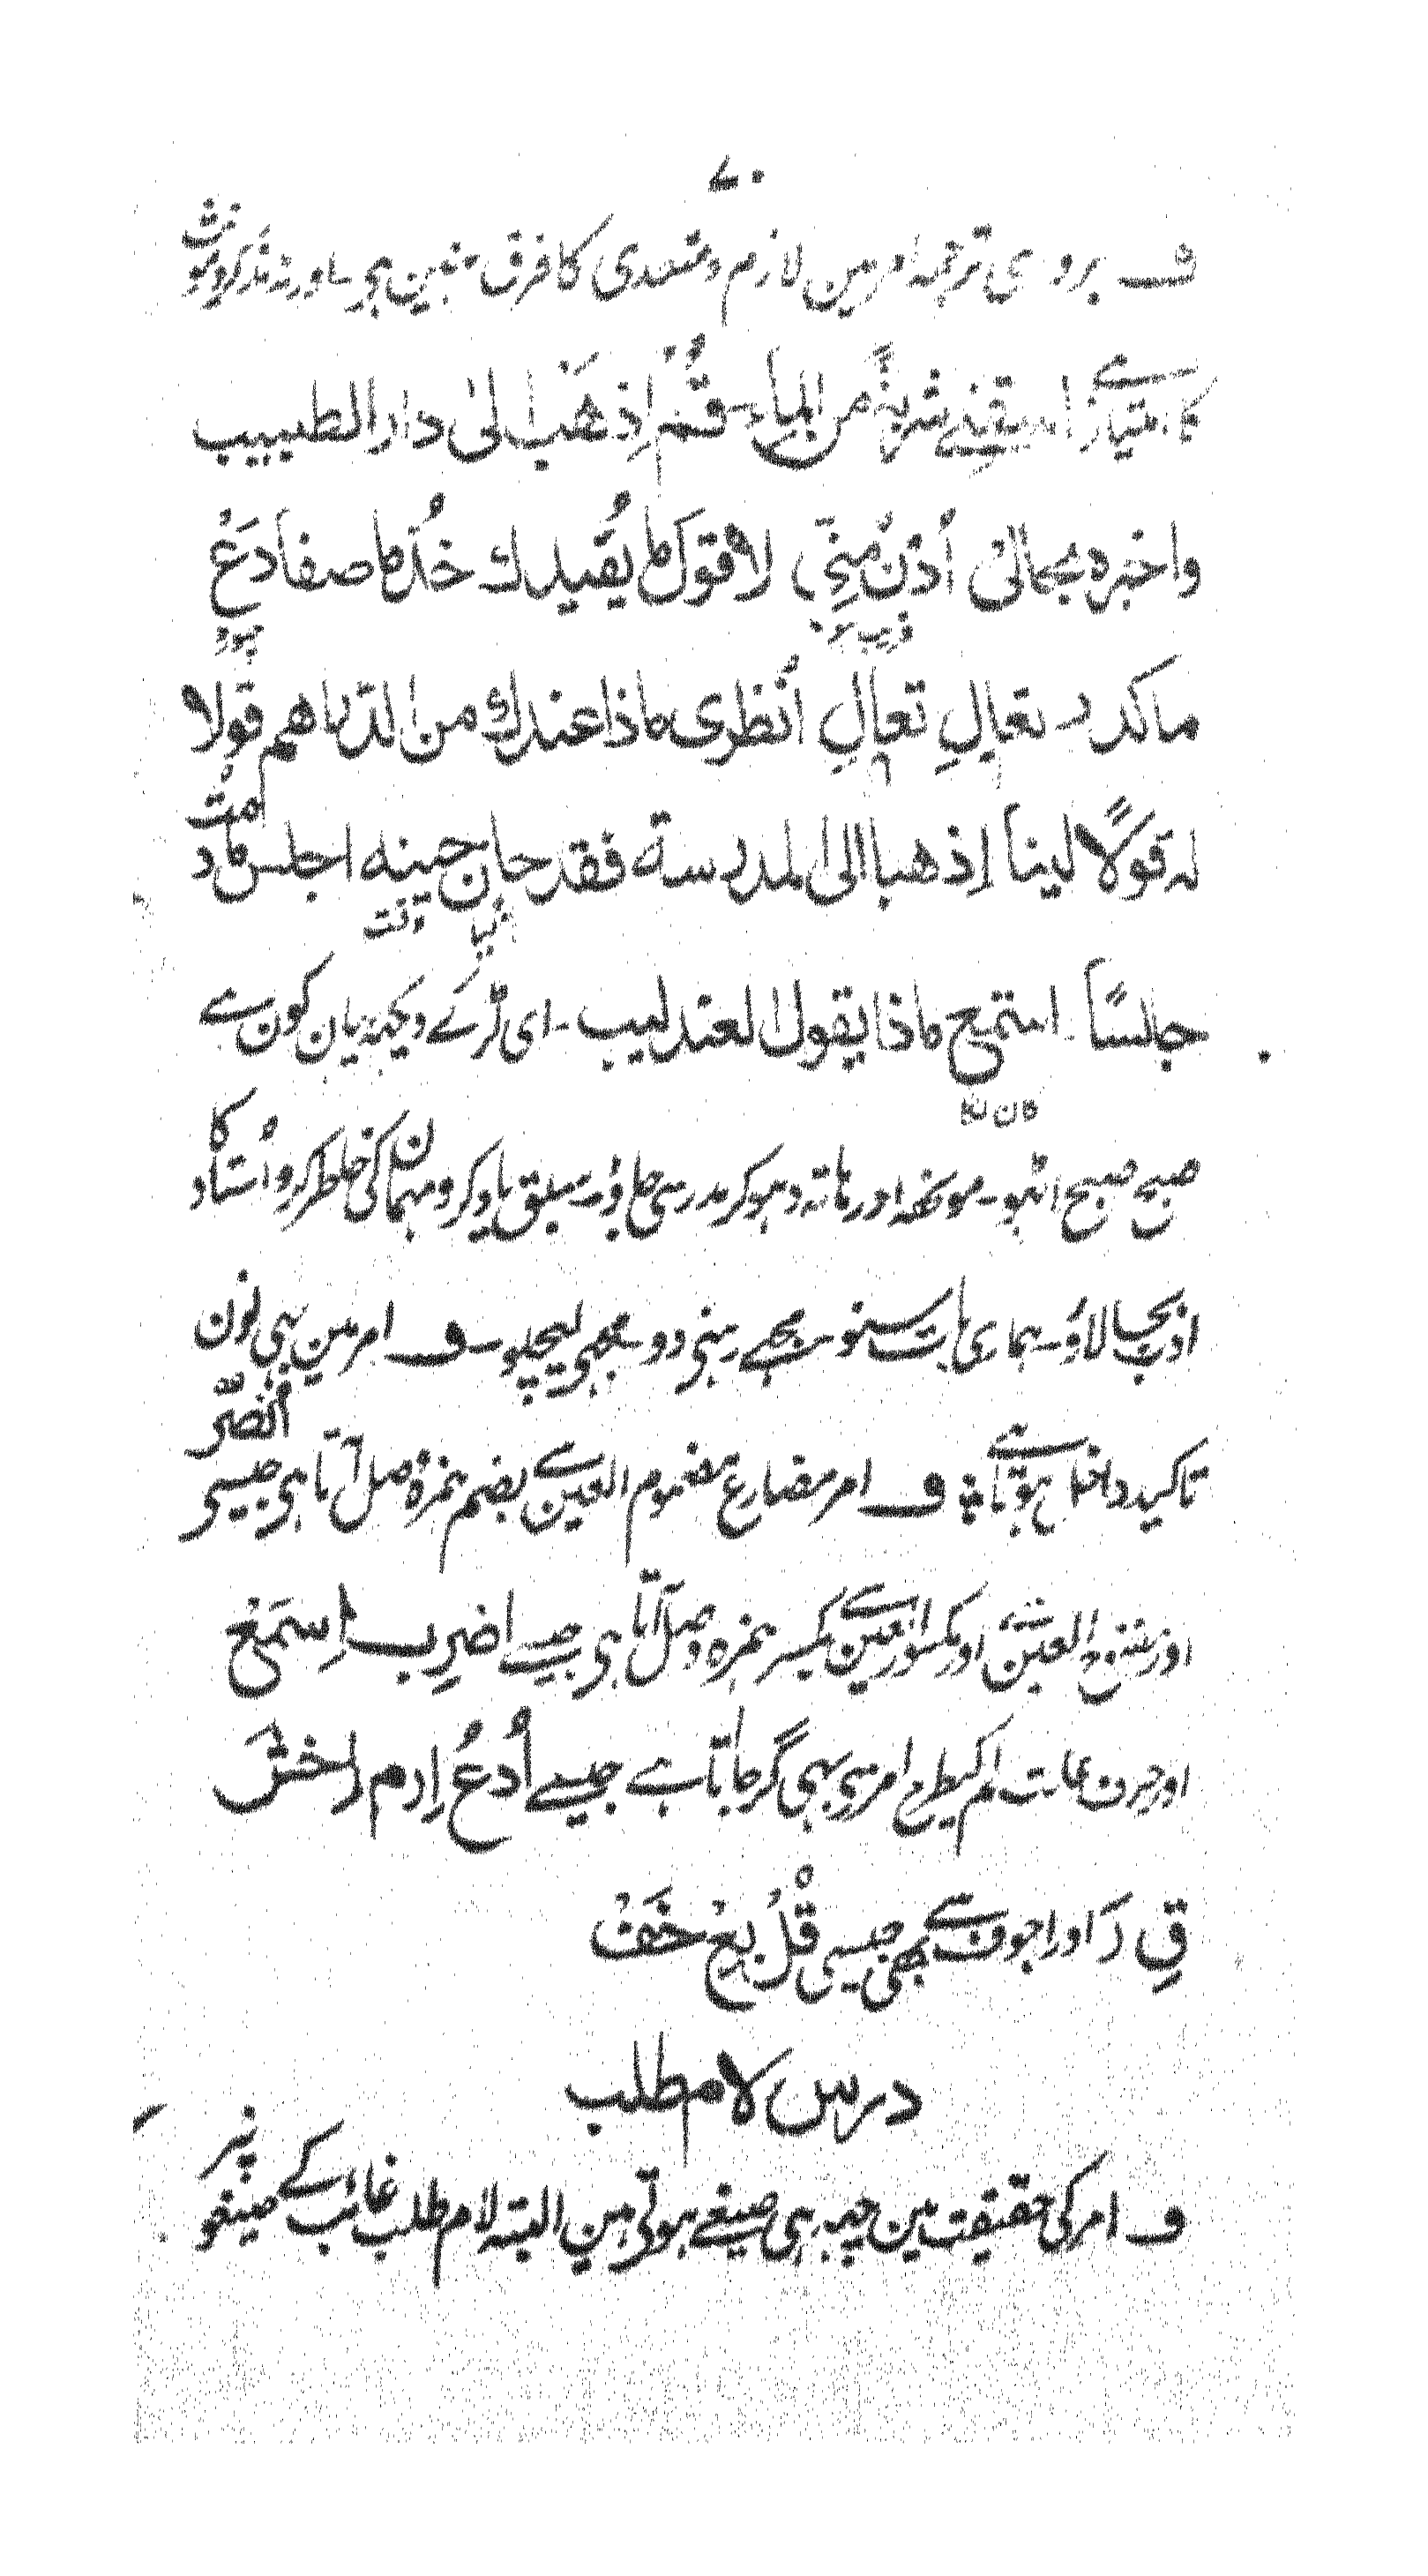 ۷۰
ف بروی ترجمہ امر مین لازم و متعدی کا فرق نہین ہی اور نہ مذکر و مونث
کا امتیاز اسقنے شربةً من الماء۔ قُمْ اِذهَبْ الیٰ دار الطبیب
واخبره بحالیْ اُدْنُ مِنِّی لاقول ما یُفیدك خُذْ ما صفا دَعْ
قریب ہو چھوڑ
ما کدر تعالِ تعالِ اُنظری ماذا عندك من الدراهم قولا
له قولًا لیناً اِذهبا الی المدرسة فقد حان حینه اجلس ما دمتَ
آگیا وقت
جالسًا استمع ماذا یقول العندلیب۔ ای لڑکے دیکہ یہان کون ہے
کان لگا
صبح صبح اٹہو۔ مونہہ اور ہاتہ دہو کر مدرسی جاؤ۔ سبق یاد کرو مہمان کی خاطر کرو اُستاد کا
ادب بجا لاؤ۔ ہماری بات سنو۔ مجھے رہنی دو۔ مجھی لیچلو۔ ف امر مین بہی نون
تاکید داخل ہوتا ہے ف امر مضارع مضموم العین سے بضم ہمزہ وصل آتا ہی جیسی اُنصُرْ
اور مفتوح العین اور مکسور العین سے بکسر ہمزہ وصل آتا ہی جیسے اضرِب اِسمَعْ
اور حرف علت لم کیطرح امر سی بہی گر جاتا ہے جیسے اُدعُ اِرم اِخشَ
قِ رَ اور اجوف سے بھی جیسی قُلْ بِعْ خَفْ
درس لام طلب
ف امر کی حقیقت مین چہہ ہی صیغے ہوتی ہین البتہ لام طلب غائب کے صیغو پر